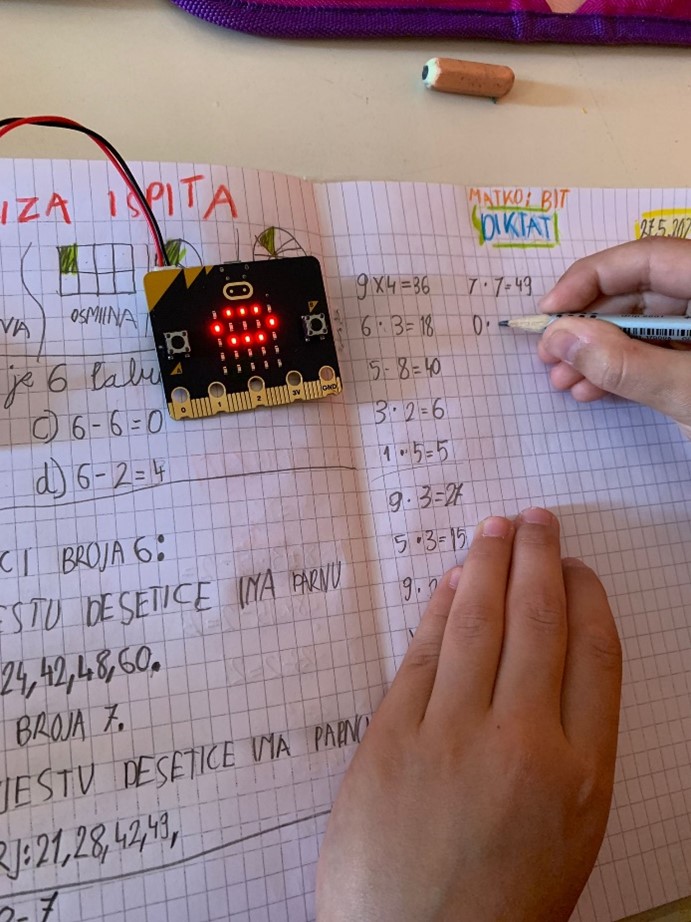 IZA ISPITA
OSMIINA
VA
je 6
c) 6-6=0
d) 6-2=4
CI BROJA 6:
ESTU DESETICE IMA PARNU
24,42,48,60.
BROJA 7.
JESTU DESETICE IMA PARNU
RJ:21,28,42,49,
MATKO; BIT
DIKTAT
27.5.202
9×4=36
6·3=18
5·8=40
3·2=6
1·5=5
9·3=27
5·3=15
9·
7·7=49
0·
0 1 2 3V GND